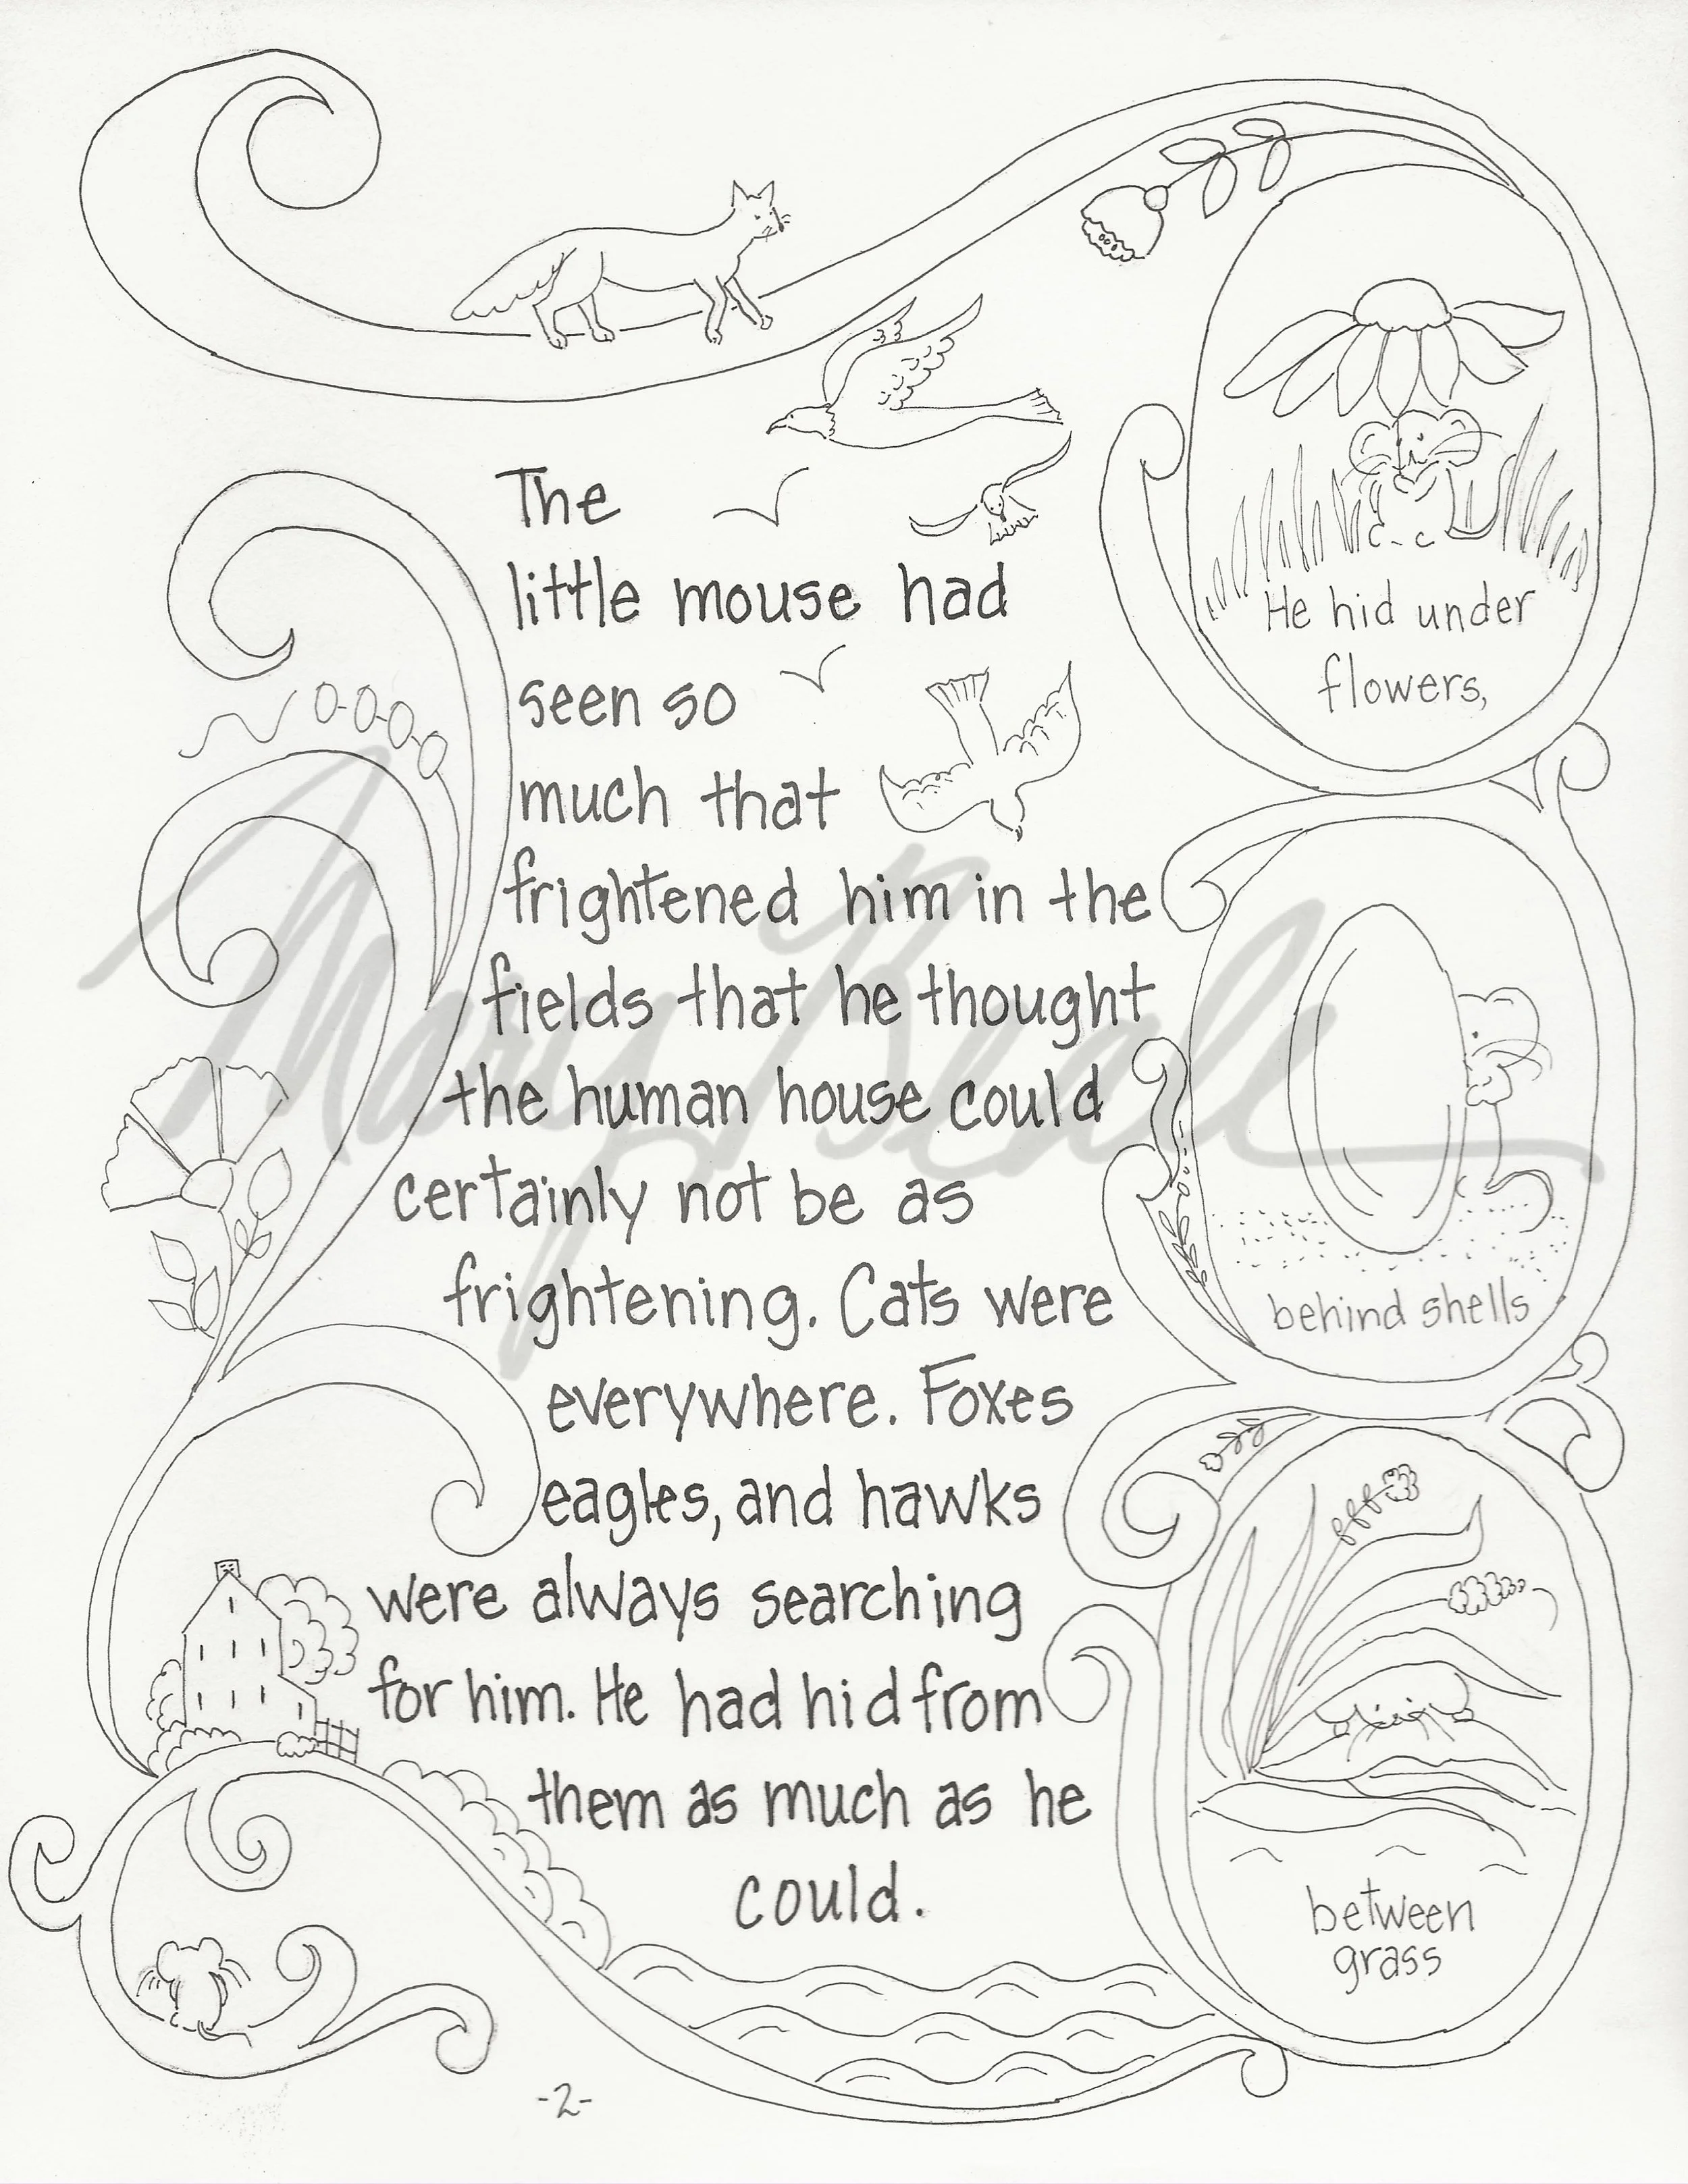 The
little mouse had
seen so
much that
frightened him in the
fields that he thought
the human house could
certainly not be as
frightening. Cats were
everywhere. Foxes
eagles, and hawks
were always searching
for him. He had hid from
them as much as he
could.
He hid under
flowers,
behind shells
between
grass
Mary Beale
-2-